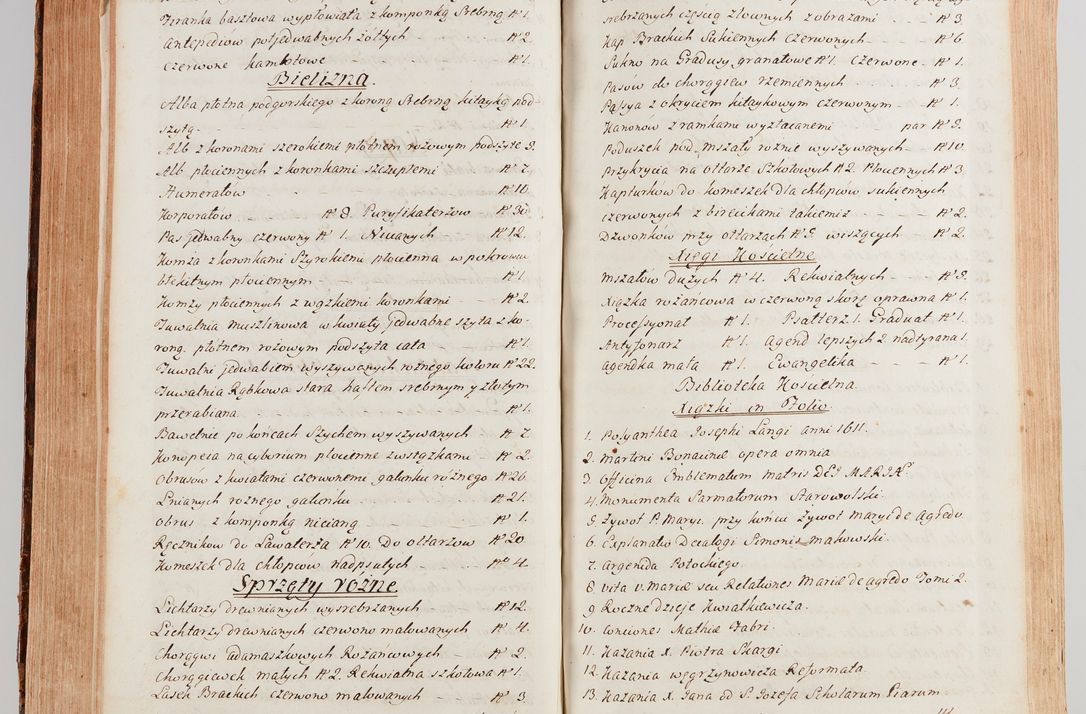 Firanka basztowa wypłowiała z komponką Srebrną N° 1.
Antepediow połjedwabnych żółtych N° 2.
czerwone kamlotowe N° 1.
Bielizna.
Alba płotna podgorskiego z koroną Srebrną kitayką pod-
szyta N° 1
Alb z koronami szerokiemi płotnem rożowym podszyte 3.
Alb płociennych z koronkami szczupłemi N° 7.
Humerałow N° 10.
Korporałow N° 8. Puryfikaterzow N° 30.
Pas jedwabny czerwony N° 1. Nicianych N° 12.
Komża z koronkami Szyrokiemi płocienna w pokrowcu
błękitnym płociennym N° 1
Komży płociennych z wązkiemi koronkami N° 2.
Tuwalnia muszlinowa w kwiaty jedwabne szyta z ko-
roną, płotnem rożowym podszyta cała N° 1.
Tuwalni jedwabiem wyszywanych rożnego koloru N° 22.
Tuwalnia Rąbkowa stara haftem srebrnym y złotym
przerabiana N° 1.
Bawełnic po końcach Szychem wyszywanych N° 7.
Konopeea na cyborium płocienne z wstążkami N° 2
Obrusow z kwiatami czerwonemi gatunku rożnego N° 26.
Lnianych rożnego gatunku N° 21.
Obrus z komponką nicianą N° 1.
Ręcznikow do Lawaterza N° 10. Do ołtarzow N° 20
Komeszek dla chłopcow nadpsutych N° 4.
Sprzęty rożne.
Lichtarzy drewnianych wysrebrzanych N° 12.
Lichtarzy drewnianych czerwono malowanych N° 4.
Chorągwi adamaszkowych Rożańcowych N° 2.
Chorągiewek małych N° 2. Rekwialna szkołowa N° 1.
Lasek Brackich czerwono malowanych N° 3.
srebrzanych częścią złownych z obrazami N° 3
Kap Brackich Sukiennych czerwonych N° 6.
Sukno na Gradusy granatowe N° 1. czerwone N° 1.
Pasow do chorągiew rzemiennych N° 3.
Passya z okryciem kitaykowym czerwonym N° 1.
Kanonow z ramkami wyzłacanemi par N° 9.
Poduszek pod mszały rożnie wyszywanych N° 10.
Przykrycia na ołtarze Szkołowych N° 2. Płociennych N° 3.
Kapturkow do komeszek dla chłopcow sukiennych
czerwonych z birecikami takiemiż N° 2.
Dzwonkow przy ołtarzach N° 9. wiszących N° 2.
Xięgi Kościelne
Mszałow dużych N° 4. Rekwialnych N° 9.
Xiążka rożańcowa w czerwoną skorę oprawna N° 1.
Processyonał N° 1. Psałterz 1. Graduał N° 1.
Antyfonarz N° 1. Agend lepszych 2. nadtyrana 1.
Agendka mała N° 1. Ewangelika N° 1.
Biblioteka Kościelna.
Xiążki in Folio.
1. Polyanthea Josephi Langi anni 1611.
2. Martini Bonacinæ opera omnia
3. Officina Emblematum Matris DEI MARIÆ.
4. Monumenta Sarmatorum Starowolski.
5. Zywot P. Maryi. przy końcu Zywot Maryi de Agreda.
6. Explanatio Decalogi Simonis Makowski.
7. Argenida Potockiego.
8. Vita V. Mariæ seu Relationes Mariæ de agredo Tomi 2.
9. Roczne dzieje Kwiatkiewicza.
10. Conciones Mathiæ Fabri.
11. Kazania X. Piotra Skargi
12. Kazania Węgrzynowicza Reformata.
13. Kazania X. Jana od S. Jozefa Scholarum Piarum.